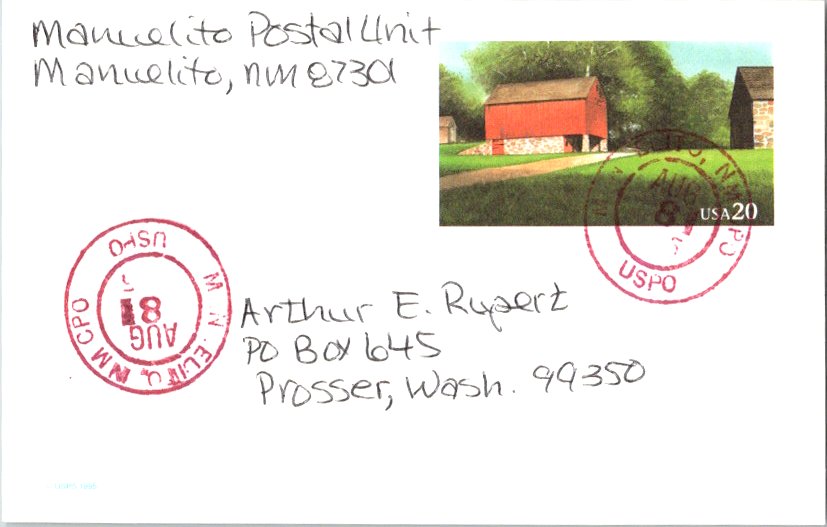 Manuelito Postal Unit
Manuelito, NM 87301
USA 20
AUG
8
USPO
USPO
AUG
8
NM CPO
Arthur E. Rupert
PO Box 645
Prosser, Wash. 99350